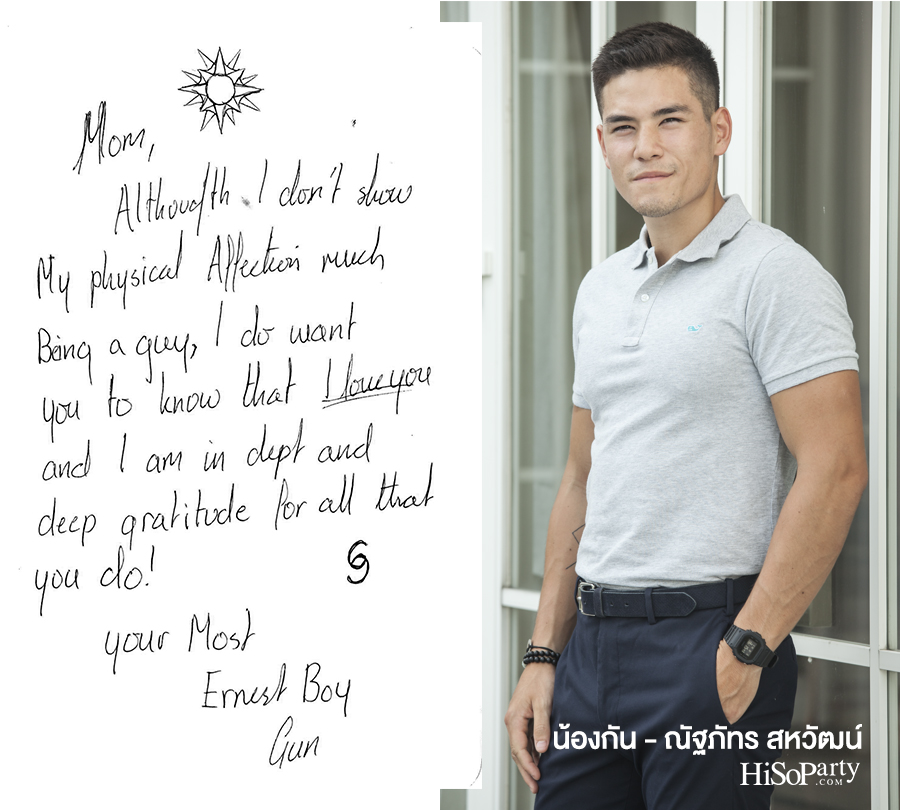 Mom,
Althoughth I don't show
My physical Affection much
Being a guy, I do want
you to know that I love you
and I am in dept and
deep gratitude for all that
you do!
your Most
Ernest Boy
Gun
น้องกัน - ณัฐภัทร สหวัฒน์
HiSoParty
.COM